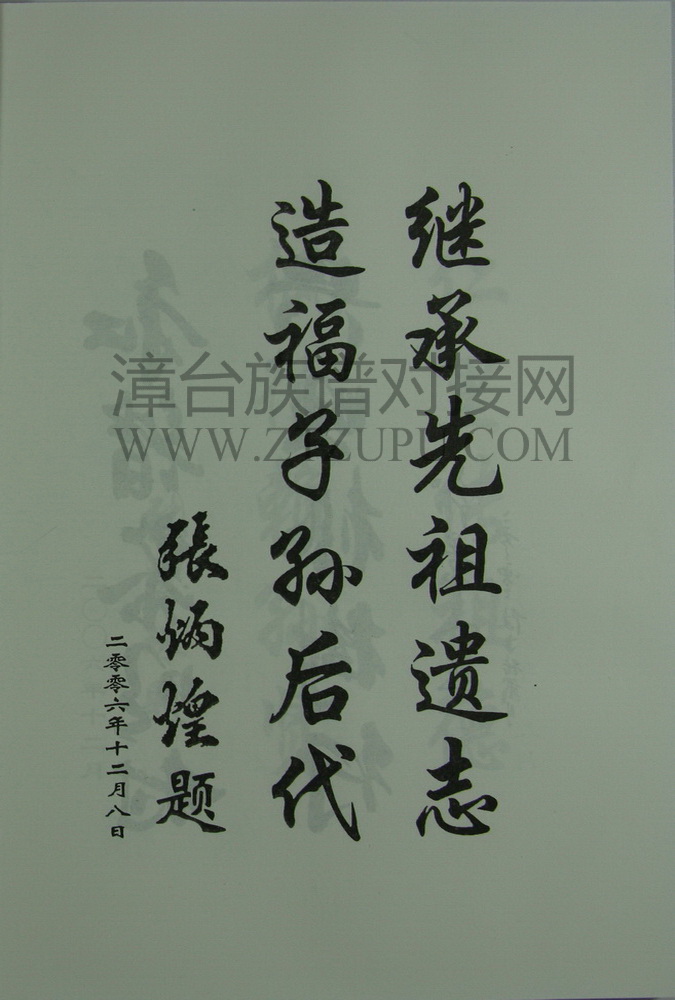 继承先祖遗志
造福子孙后代
張炳煌题
二零零六年十二月八日
漳台族谱对接网
WWW.ZTZUPU.COM